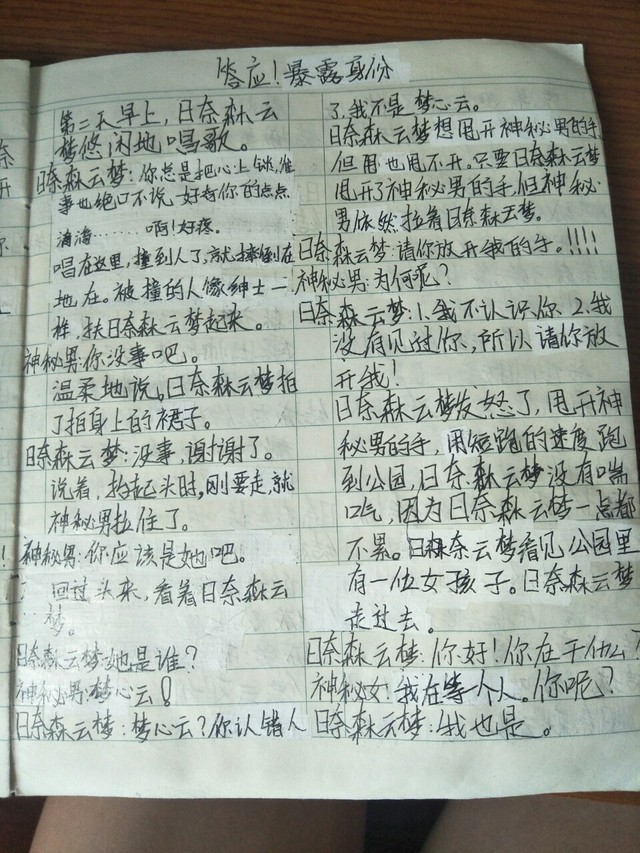 答应！暴露身份
第二天早上，日奈森云
梦悠闲地唱歌。
日奈森云梦：你总是把心上锁，谁
事也绝口不说，好奇你的总点
滴滴………啊！好疼。
唱在这里，撞到人了，就摔倒在
地在。被撞的人像绅士一
样，扶日奈森云梦起来。
神秘男：你没事吧。
温柔地说。日奈森云梦拍
了拍身上的裙子。
日奈森云梦：没事，谢谢了。
说着，抬起头时，刚要走，就
神秘男拉住了。
神秘男：你应该是她吧。
回过头来，看着日奈森云
梦。
日奈森云梦：她是谁？
神秘男：梦心云！
日奈森云梦：梦心云？你认错人
了，我不是梦心云。
日奈森云梦想甩开神秘男的手，
但甩也甩不开。只要日奈森云梦
甩开了神秘男的手，但神秘
男依然拉着日奈森云梦。
日奈森云梦：请你放开我的手。！！！！
神秘男：为何呢？
日奈森云梦：1.我不认识你 2.我
没有见过你，所以请你放
开我！
日奈森云梦发怒了，甩开神
秘男的手，用短跑的速度跑
到公园，日奈森云梦没有喘
气，因为日奈森云梦一点都
不累。日奈森云梦看见公园里
有一位女孩子。日奈森云梦
走过去。
日奈森云梦：你好！你在干什么？
神秘女：我在等一个人。你呢？
日奈森云梦：我也是。